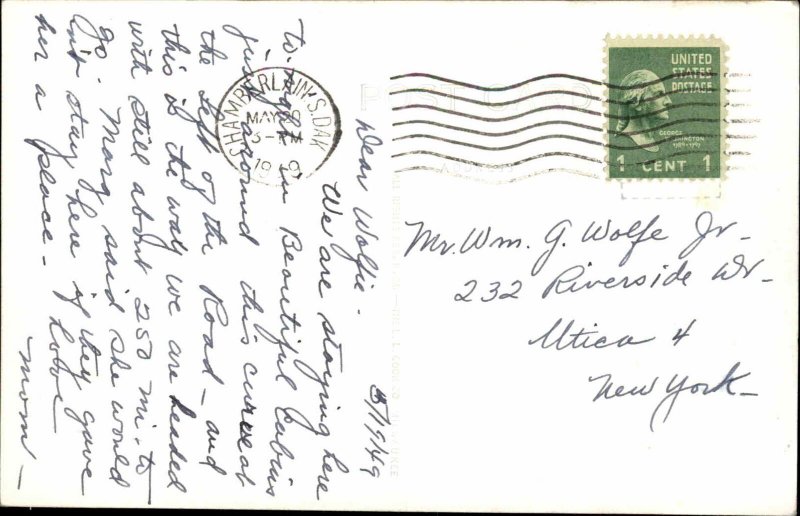 Dear Wolfie -
5/19/49
We are staying here
to-night in Beautiful Cabins
just around this curve at
the left of the Road - and
this is the way we are headed
with still about 250 mi. to
go. Marg said she would
n't stay here if they gave
her a place -
Love
Mom -
CHAMBERLAIN, S. DAK.
MAY
3 - PM
19 9
POST CARD
ADDRESS
UNITED
STATES
POSTAGE
GEORGE
WASHINGTON
1789-1797
1 CENT 1
Mr. Wm. G. Wolfe Jr -
232 Riverside Dr -
Utica 4
New York -